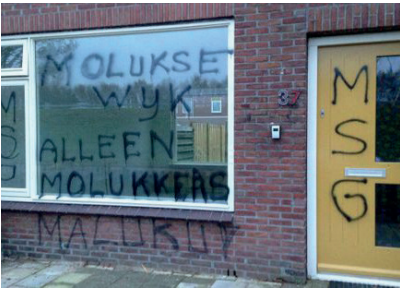 MOLUKSE
WYK
ALLEEN
MOLUKKERS
MALUKU
37
M
S
G
M
S
G